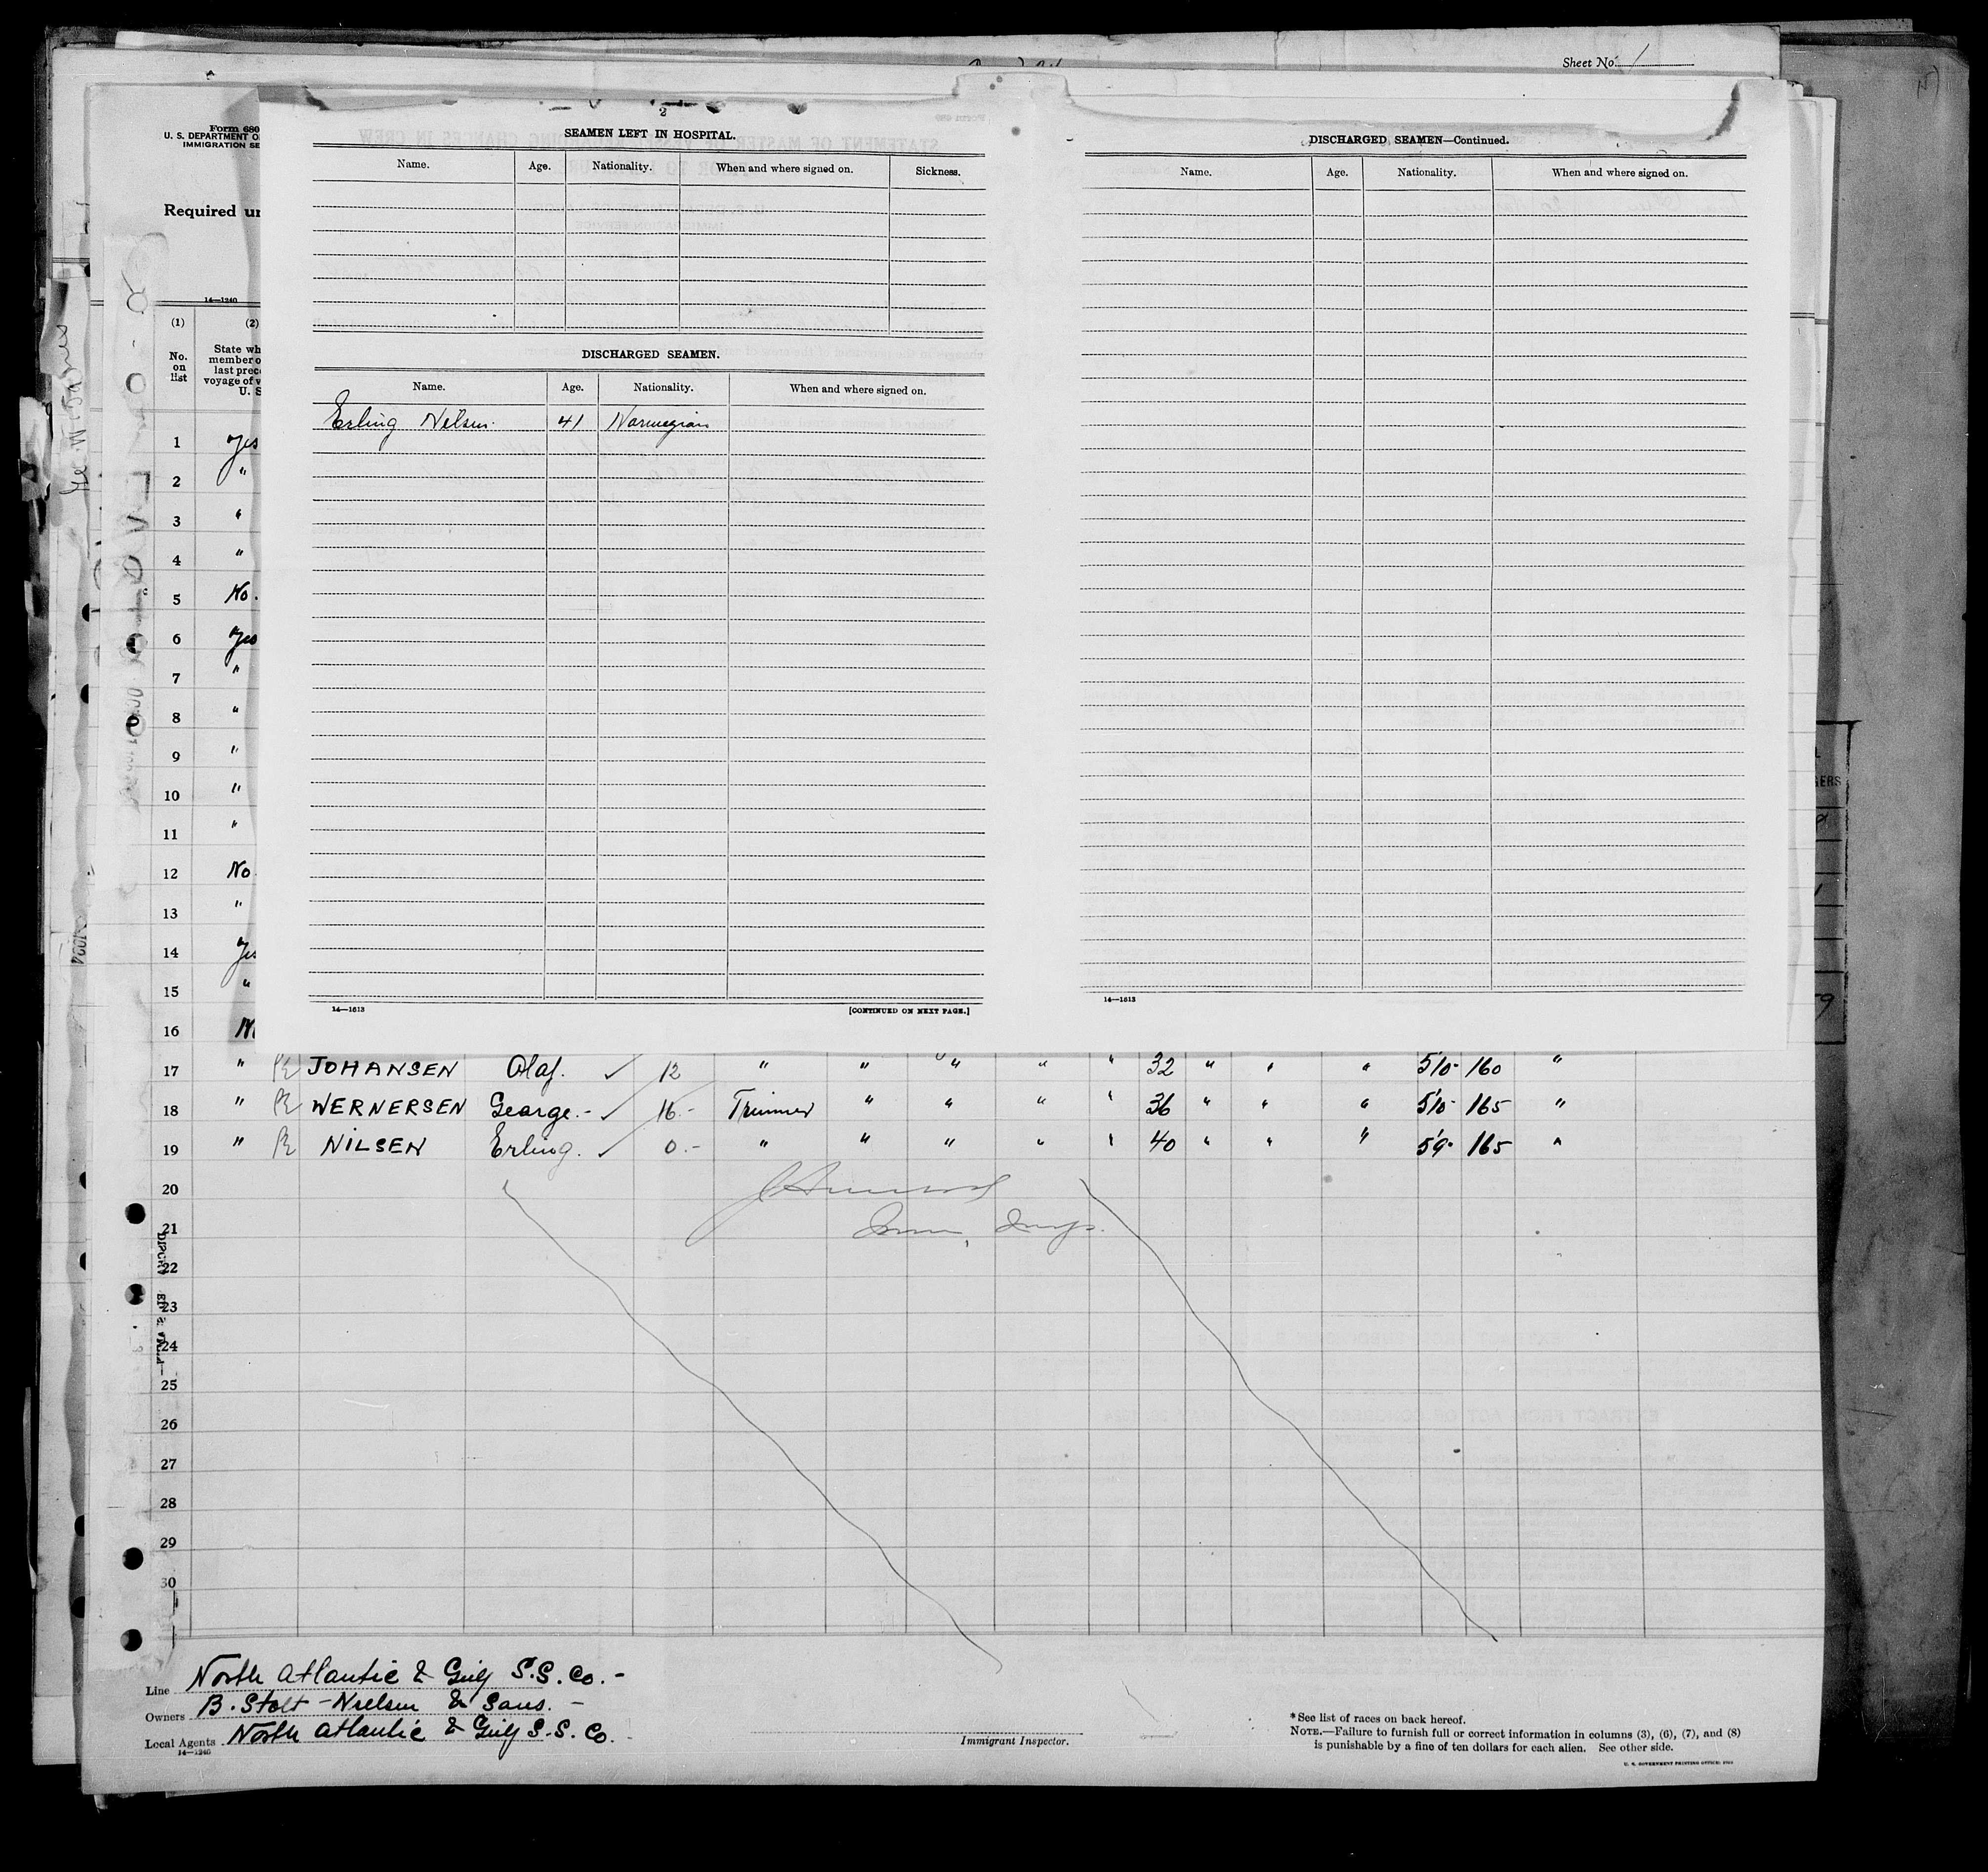 Sheet No. 1
Form 680
U. S. DEPARTMENT O
IMMIGRATION SE
Required un
14—1240
(1) (2)
No. on list
State wh
member o
last prec
voyage of v
U. S
1 Yes
2 "
3 "
4 "
5 No.
6 Yes
7 "
8 "
9 "
10 "
11 "
12 No
13 "
14 Yes
15 "
16 No
2
SEAMEN LEFT IN HOSPITAL.
Name. Age. Nationality. When and where signed on. Sickness.
DISCHARGED SEAMEN.
Name. Age. Nationality. When and where signed on.
Erling Nelsen. 41 Norwegian
14—1613 [CONTINUED ON NEXT PAGE.]
DISCHARGED SEAMEN—Continued.
Name. Age. Nationality. When and where signed on.
14—1613
17 " JOHANSEN Olaf. ✓ 12 " " " " " 32 " " " 5'10- 160 "
18 " WERNERSEN George.- ✓ 16.- Trimmer " " " " 36 " " " 5'10- 165 "
19 " NILSEN Erling. ✓ 0.- " " " " " 40 " " " 5'9- 165 "
20
21
22
23
24
25
26
27
28
29
30
Line North Atlantic & Gulf S.S. Co.-
Owners B. Stolt-Nielsen & Sons.-
Local Agents North Atlantic & Gulf S.S. Co.
14—1240
Immigrant Inspector.
*See list of races on back hereof.
NOTE.—Failure to furnish full or correct information in columns (3), (6), (7), and (8)
is punishable by a fine of ten dollars for each alien. See other side.